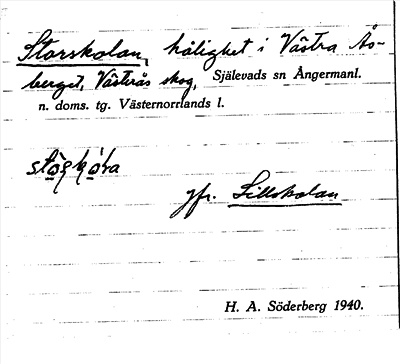 Storskolan, hålighet i Västra Ås-
berget, Västerås skog, Själevads sn Ångermanl.
n. doms. tg. Västernorrlands l.
jfr. Lillskolan
H. A. Söderberg 1940.